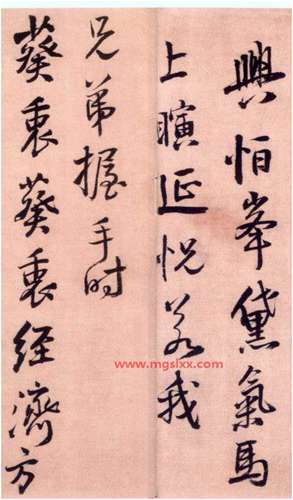 興怕峯黛氣馬
上瞑延悦若我
兄弟握手时
葵衷葵衷经濟方
www.mgslxx.com